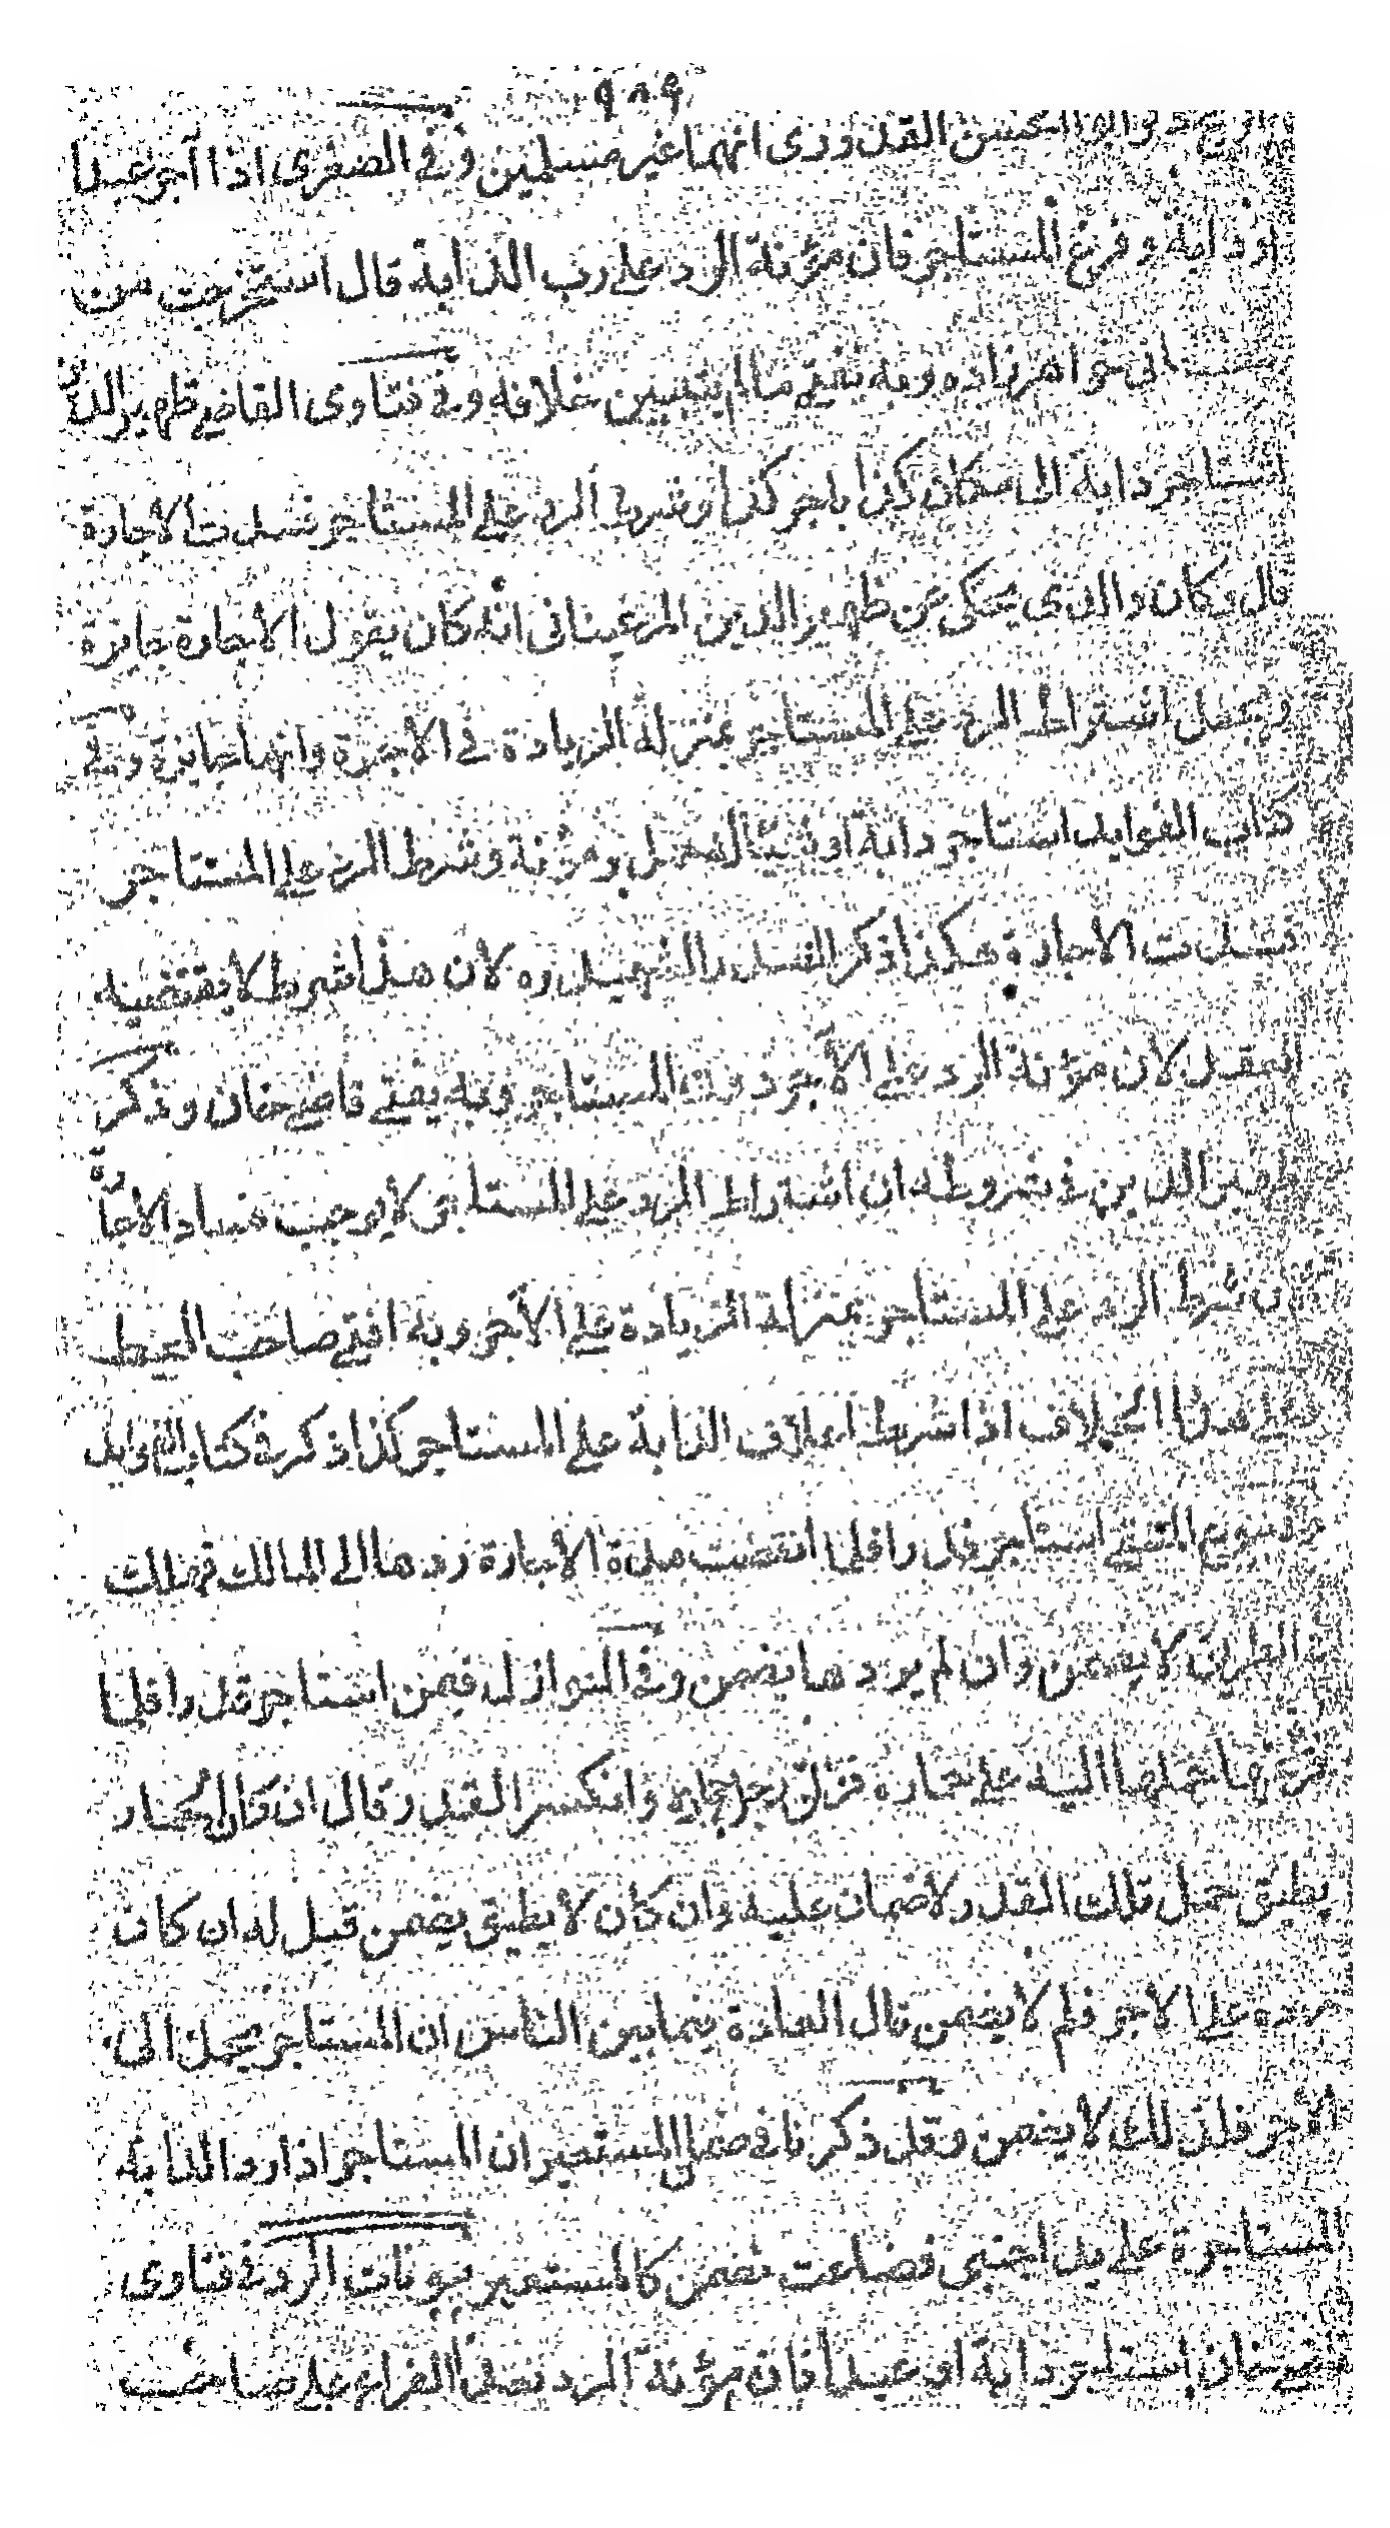 ٩٨٩
القدوري انهما غير مسلمين وفي الصغرى اذا آجر عبدا
او دابة وفرغ المستاجر فان مؤنة الرد على رب الدابة قال استخرجت من
خواهر زاده وبه يفتى ما لم يتبين خلافه وفي فتاوى القاضي ظهير الدين
استاجر دابة الى مكان كذا باجر كذا وشرط الرد على المستاجر فسدت الاجارة
قال وكان والدى يحكى عن ظهير الدين المرغينانى انه كان يقول الاجارة جائزة
ويجعل اشتراط الرد على المستاجر بمنزلة الزيادة في الاجرة وانها جائزة وفي
كتاب الفوايد استاجر دابة او شيئا له حمل ومؤنة وشرط الرد على المستاجر
فسدت الاجارة هكذا ذكر الصدر الشهيد ره لان هذا شرط لا يقتضيه
العقد لان مؤنة الرد على الآجر دون المستاجر وبه يفتى قاضي خان وذكر
ظهير الدين في شروطه ان اشتراط الرد على المستاجر لا يوجب فساد الاجارة
لان شرط الرد على المستاجر بمنزلة الزيادة على الاجر وبه افتى صاحب المحيط
هذا الخلاف اذا شرط اعلاف الدابة على المستاجر كذا ذكر في كتاب الفوايد
استاجر قدرا فلما انقضت مدة الاجارة ردها الى المالك فهلك
الطريق لا يضمن وان لم يردها يضمن وفي النوازل فيمن استاجر قدرا فلما
فرغ منها حملها اليه على حماره فزلق رجل حماره وانكسر القدر قال ان كان الحمار
يطيق حمل تلك القدر لا ضمان عليه وان كان لا يطيق يضمن قيل له ان كان
رده على الآجر فلم لا يضمن قال العادة فيما بين الناس ان المستاجر يحمل الى
الآجر فلذلك لا يضمن وقد ذكرنا في ضمان المستعير ان المستاجر اذا رد الدابة
المستاجرة على يد اجنبى فضاعت يضمن كالمستعير وفي فتاوى
قاضي خان استاجر دابة او عبدا فان مؤنة الرد بعد الفراغ على صاحب